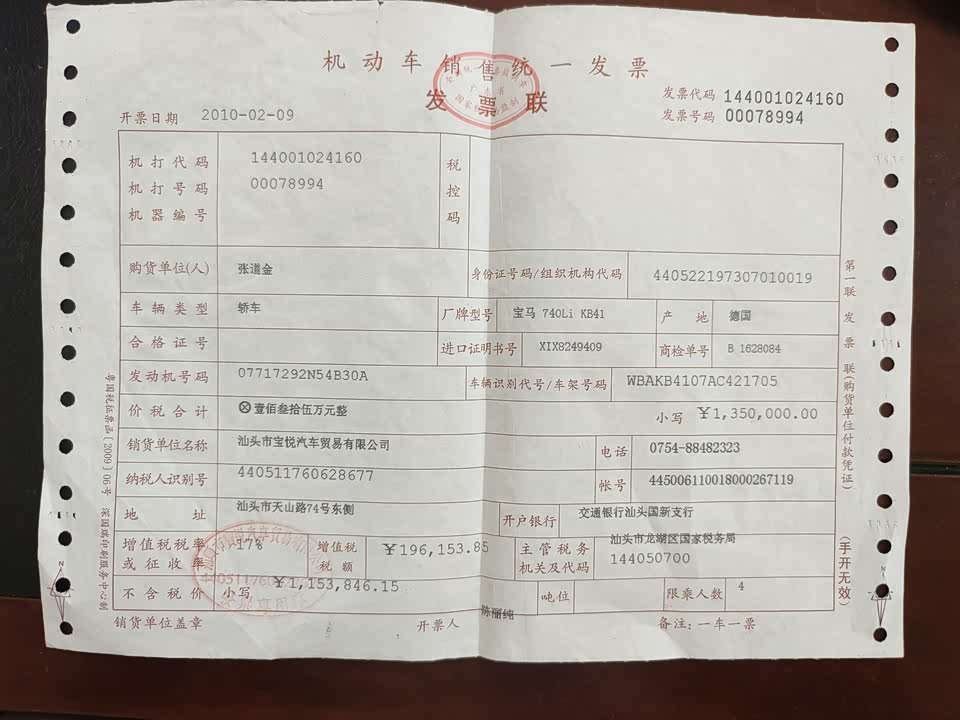 机动车销售统一发票
发票联
开票日期 2010-02-09
发票代码 144001024160
发票号码 00078994
机打代码 144001024160
机打号码 00078994
机器编号
税控码
购货单位(人) 张道金 身份证号码/组织机构代码 440522197307010019
车辆类型 轿车 厂牌型号 宝马 740Li KB41 产地 德国
合格证号 进口证明书号 XIX8249409 商检单号 B 1628084
发动机号码 07717292N54B30A 车辆识别代号/车架号码 WBAKB4107AC421705
价税合计 ⊗壹佰叁拾伍万元整 小写 ¥1,350,000.00
销货单位名称 汕头市宝悦汽车贸易有限公司 电话 0754-88482323
纳税人识别号 440511760628677 帐号 445006110018000267119
地址 汕头市天山路74号东侧 开户银行 交通银行汕头国新支行
增值税税率或征收率 17% 增值税税额 ¥196,153.85 主管税务机关及代码 汕头市龙湖区国家税务局 144050700
不含税价 小写 ¥1,153,846.15 吨位 限乘人数 4
销货单位盖章 开票人 陈丽纯 备注:一车一票
第一联 发票联(购货单位付款凭证)
(手开无效)